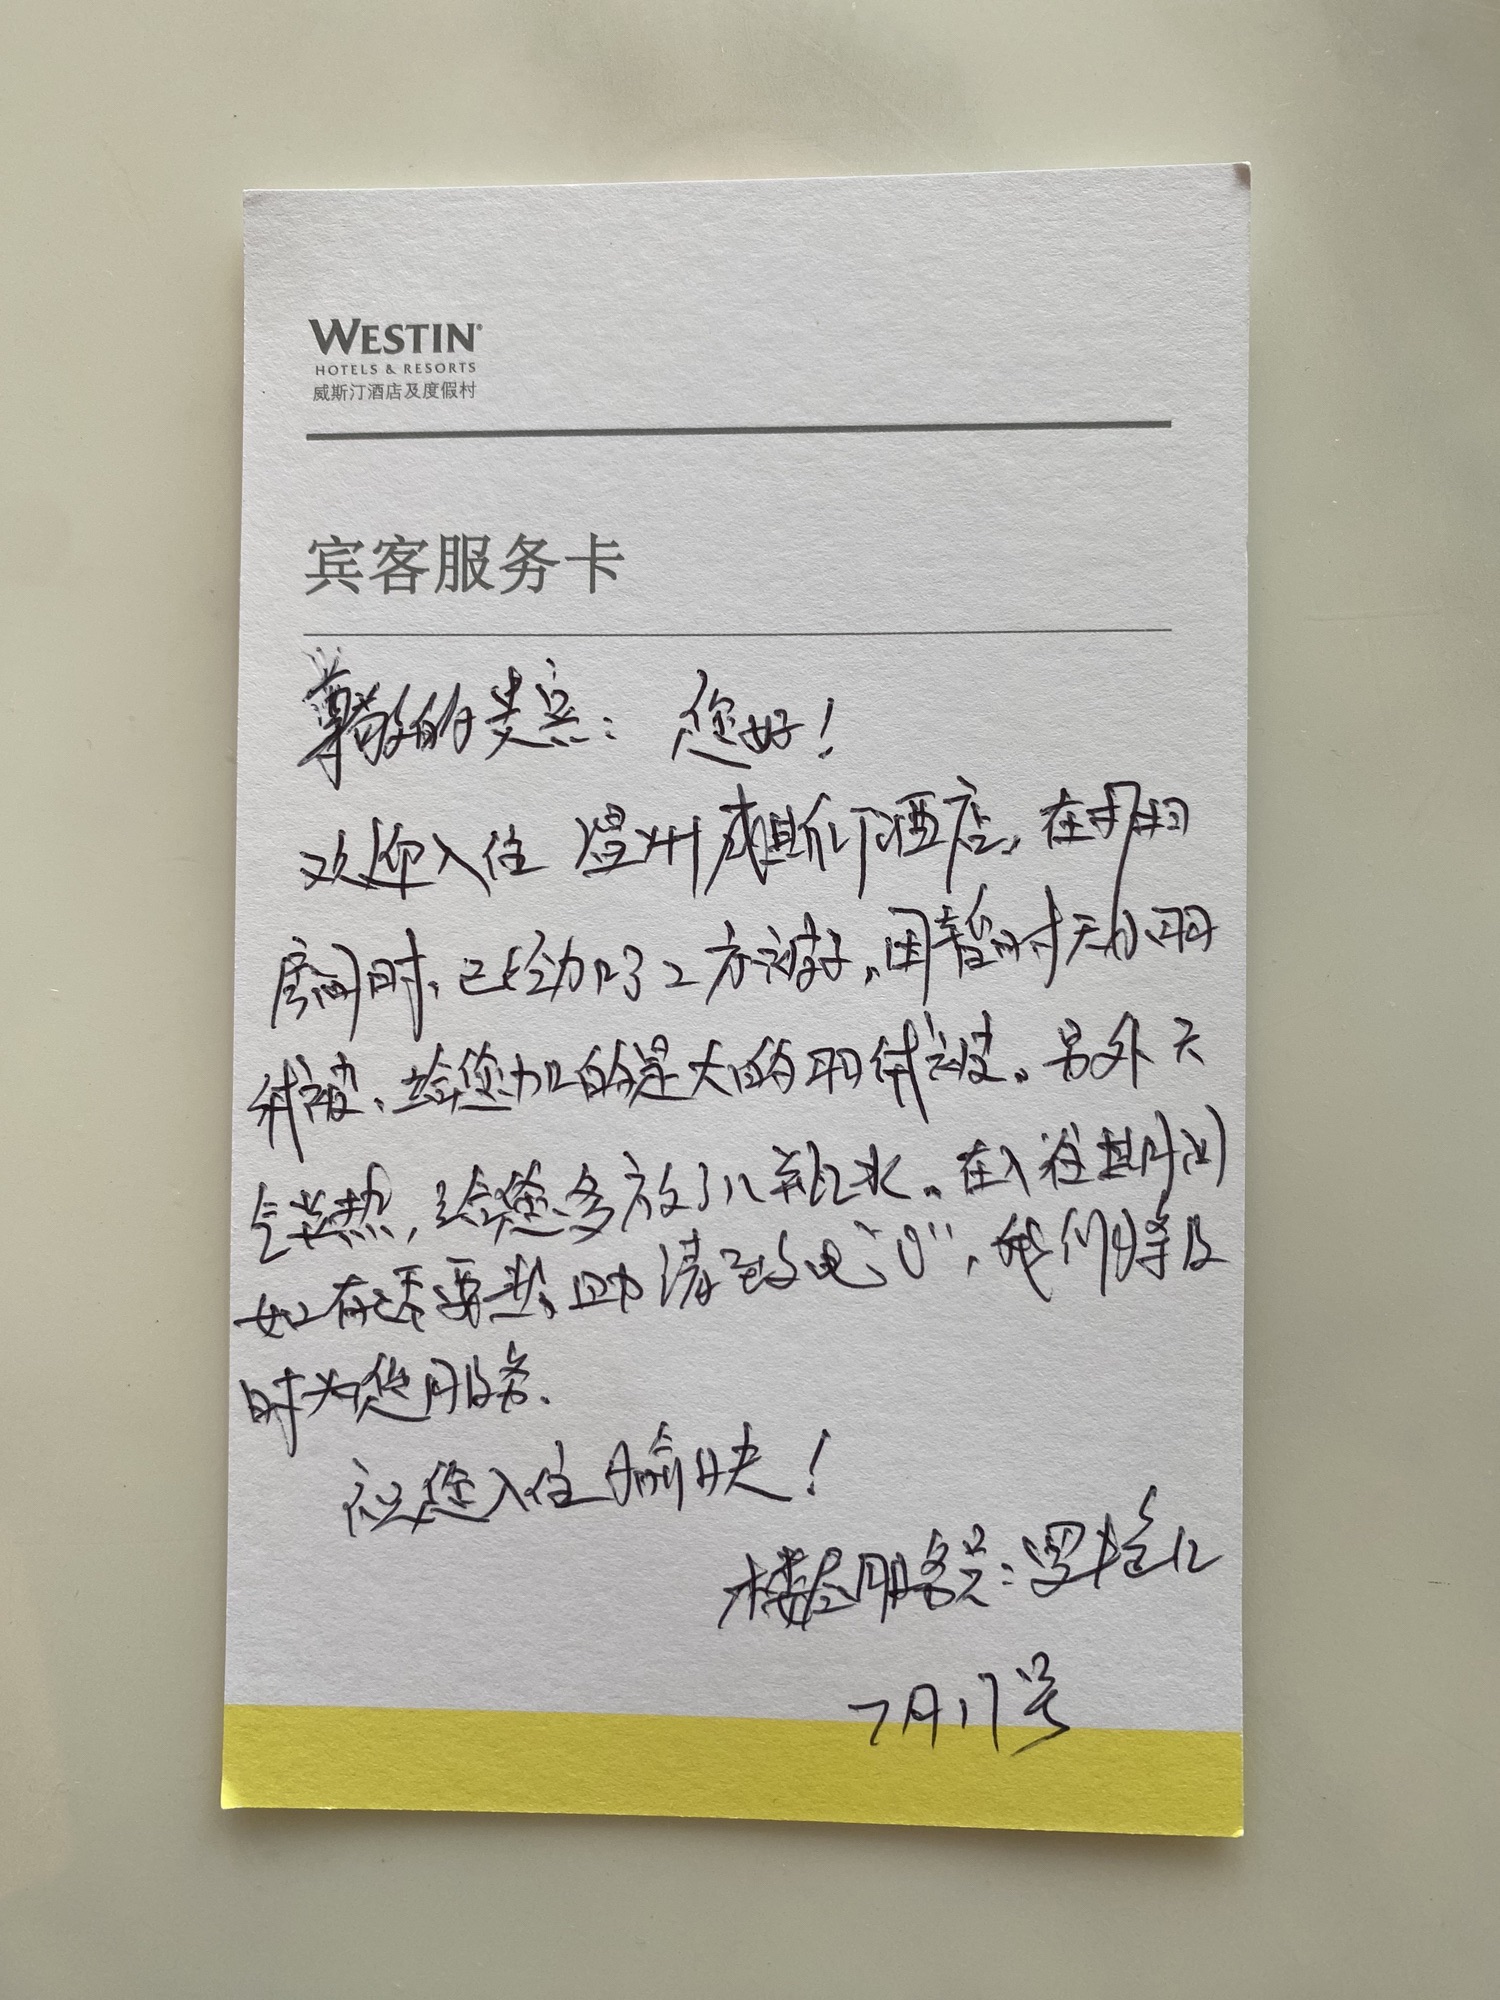 WESTIN®
HOTELS & RESORTS
威斯汀酒店及度假村
宾客服务卡
尊敬的贵宾: 您好!
欢迎入住温州威斯汀酒店,在
房间时,已给加了2床被子,因暂时无小羽
绒被,给您加的是大的羽绒被。另外天
气炎热,给您多放了几瓶水。在入住期间
如有需要协助请致电"0",我们将及
时为您服务.
祝您入住愉快!
楼层服务员:罗
7月17号